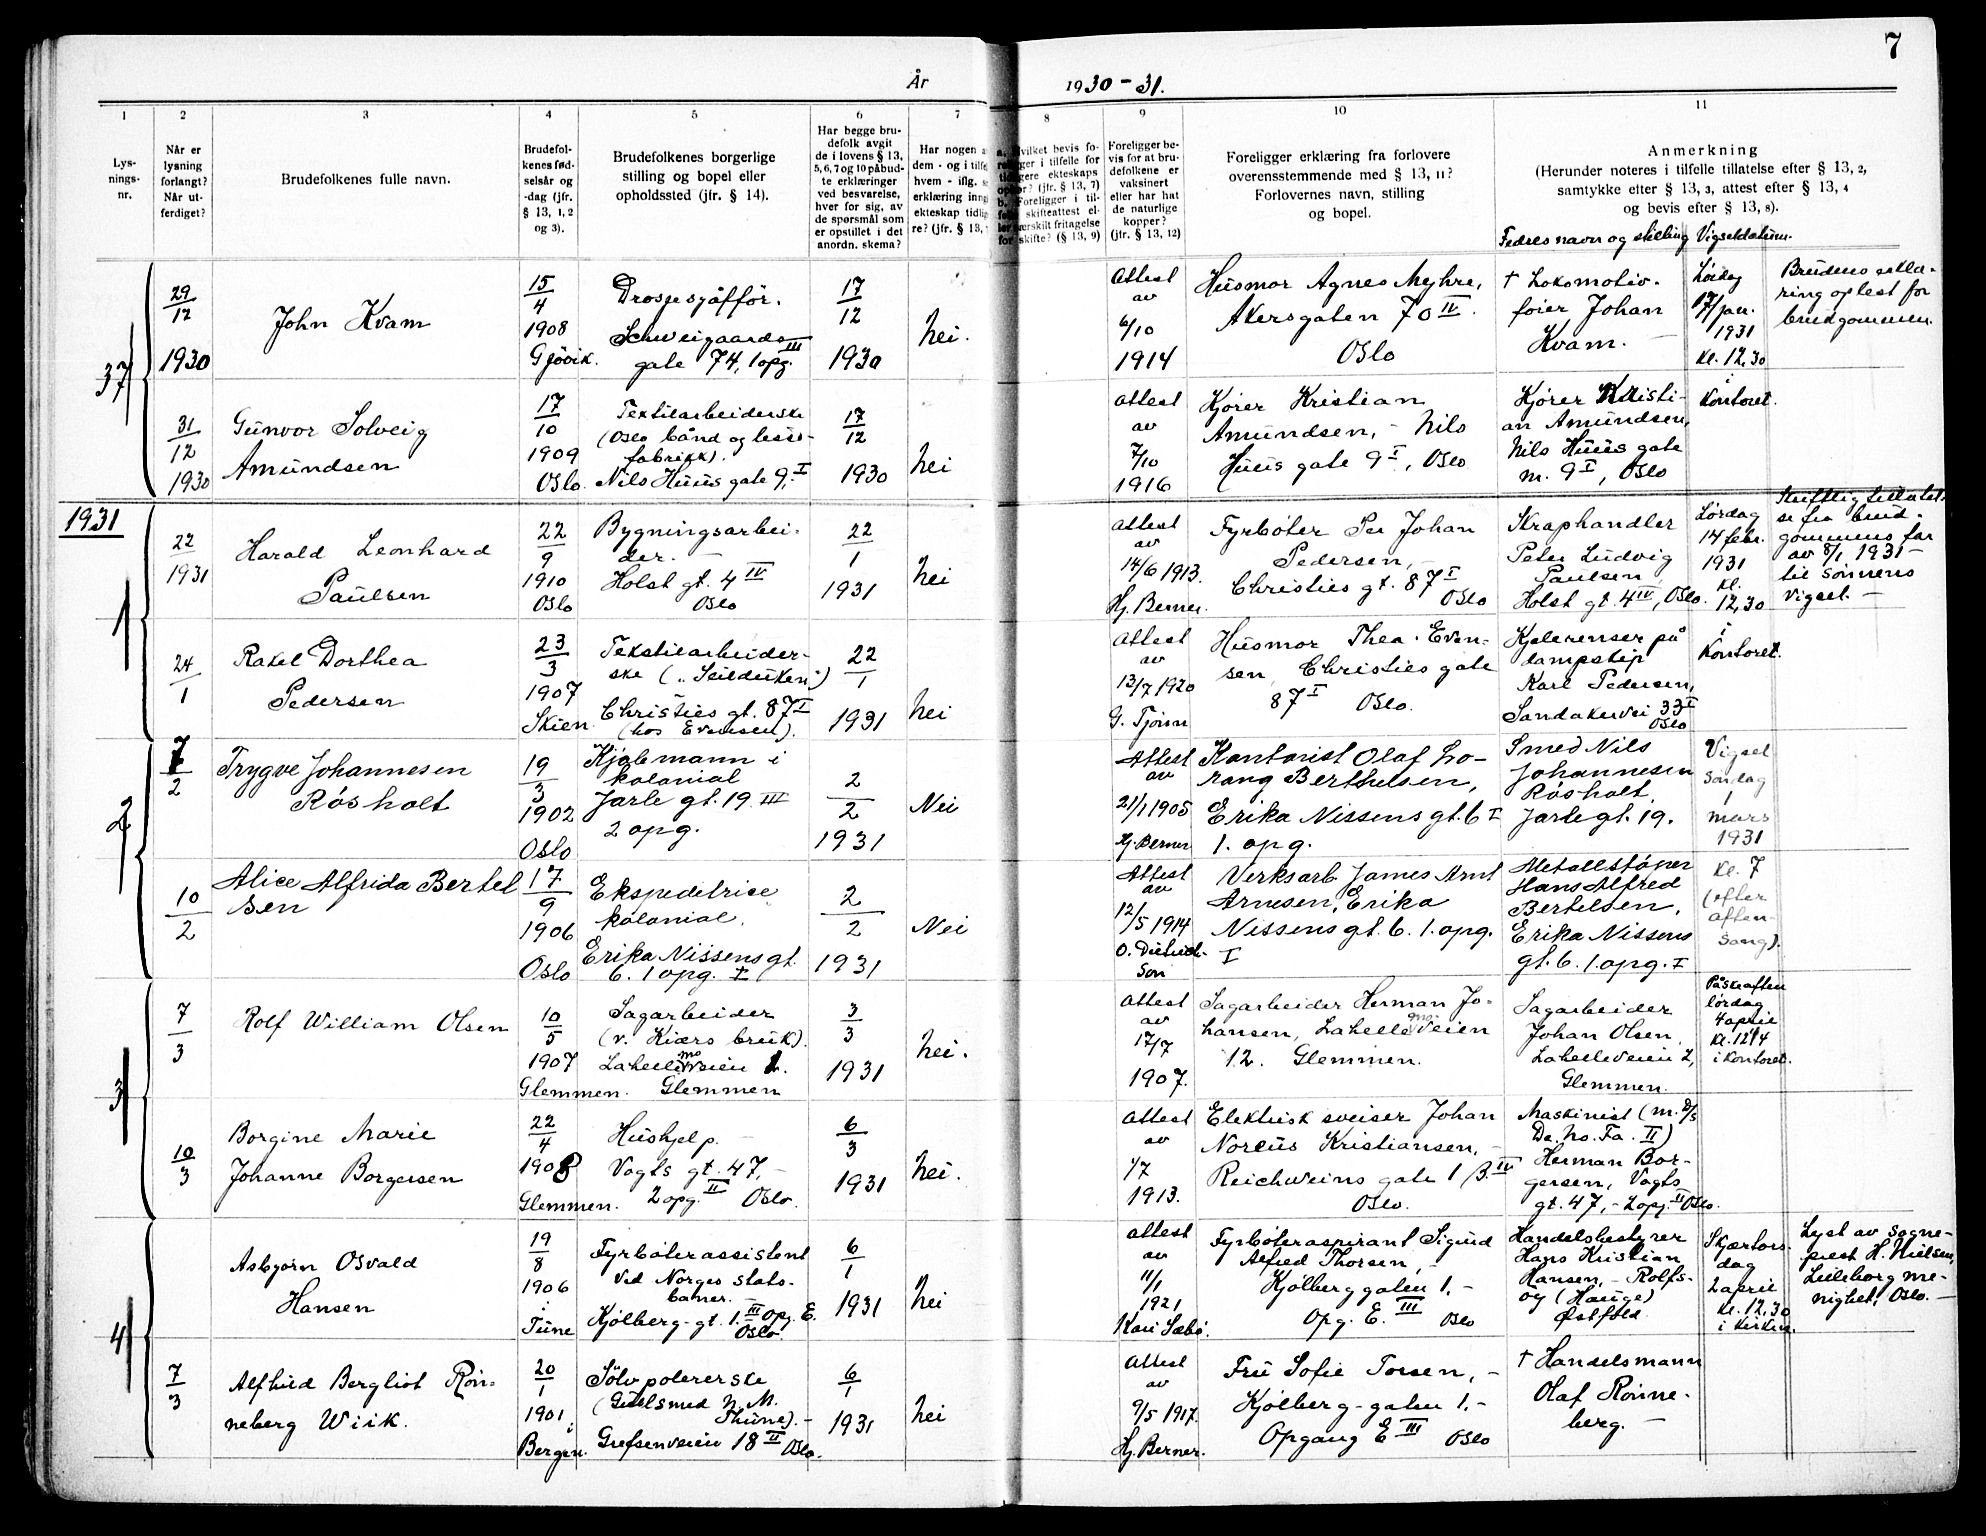 7
År 1930-31.
1
Lys-
nings-
nr.
2
Når er
lysning
forlangt?
Når ut-
ferdiget?
3
Brudefolkenes fulle navn.
4
Brudefol-
kenes fød-
selsår og
-dag (jfr.
§ 13, 1, 2
og 3).
5
Brudefolkenes borgerlige
stilling og bopel eller
opholdssted (jfr. § 14).
6
Har begge bru-
defolk avgit
de i lovens § 13,
5, 6, 7 og 10 påbud-
te erklæringer
ved besvarelse,
hver for sig, av
de spørsmål som
er opstillet i det
anordn. skema?
7
Har nogen a
dem - og i tilfe
hvem - iflg.
erklæring inn
ekteskap tidlig
re? (jfr. § 13,
8
Hvilket bevis fo-
religger i tilfelle for
tidligere ekteskaps
ophør? (jfr. § 13, 7)
b. Foreligger i til-
felle skifteattest el-
ler særskilt fritagelse
for skifte? (§ 13, 9)
9
Foreligger be-
vis for at bru-
defolkene er
vaksinert
eller har hat
de naturlige
kopper?
(jfr. § 13, 12)
10
Foreligger erklæring fra forlovere
overensstemmende med § 13, 11?
Forlovernes navn, stilling
og bopel.
11
Anmerkning
(Herunder noteres i tilfelle tillatelse efter § 13, 2,
samtykke efter § 13, 3, attest efter § 13, 4
og bevis efter § 13, 8).
Fedres navn og stilling Vigseldatum.
37
29/12
1930
John Kvam
15/4
1908
Gjøvik.
Drosjesjåffør.
Schweigaards
gate 74, 1 opg. III
17/12
1930
Nei.
Attest
av
6/10
1914
Husmor Agnes Myhre,
Akersgaten 70 II.
Oslo
† Lokomotiv-
fører Johan
Kvam. —
Lørdag
17/jan.
1931
kl. 12,30
i
Kontoret.
Brudens erklæ-
ring oplest for
brudgommen.
31/12
1930
Gunvor Solveig
Amundsen
17/10
1909
Oslo.
Textilarbeiderske
(Oslo bånd og lisse-
fabrikk).
Nils Huus gate 9, I
17/12
1930
Nei
Attest
av
7/10
1916
Kjører Kristian
Amundsen, - Nils
Huus gate 9 I, Oslo
Kjører Kristi-
an Amundsen,
Nils Huus gate
nr. 9 I, Oslo
1931
1
22/
1931
Harald Leonhard
Paulsen
22/9
1910
Oslo
Bygningsarbei-
der. —
Holst gt. 4 IV
Oslo
22/1
1931
Nei
Attest
av
14/6 1913.
Hj. Berner.
Fyrbøter Per Johan
Pedersen,
Christies gt. 87 I
Oslo
Skraphandler
Peter Ludvig
Paulsen
Holst gt. 4 IV, Oslo.
Lørdag
14 febr.
1931
kl.
12,30
i
Kontoret.
Skriftlig tillatel-
se fra brud-
gommens far
av 8/1 1931 —
til sønnens
vigsel. —
24/1
Rakel Dorthea
Pedersen
23/3
1907
Skien
Tekstilarbeider-
ske („Seilduken")
Christies gt. 87 I
(hos Evensen).
22/1
1931
Nei
Attest
av
13/7 1920
G. Tjønn
Husmor Thea Even-
sen, Christies gate
87 I Oslo.
Kjelerenser på
dampskip
Karl Pedersen,
Sandakervei 33 I
Oslo
2
7/2
Trygve Johannesen
Røsholt
19/3
1902
Oslo
Kjøbmann i
kolonial
Jarle gt. 19 III
2 opg.
2/2
1931
Nei
Attest
av
21/1 1905
Hj. Berner
Kontorist Olaf Lo-
rang Berthelsen,
Erika Nissens gt. 6 I
1. opg.
Smed Nils
Johannesen
Røsholt,
Jarle gt. 19.
Vigsel
søndag
1
mars
1931
kl. 7
(efter
aften-
sang).
10/2
Alice Alfrida Bertel
sen
17/9
1906
Oslo
Ekspeditrise
kolonial.
Erika Nissens gt.
6. 1 opg. I
2/2
1931
Nei
Attest
av
12/5 1914
O. Didrich-
son
Verksarb. James Arnt
Arnesen, Erika
Nissens gt. 6. 1. opg.
I
Metallstøper
Hans Alfred
Bertelsen,
Erika Nissens
gt. 6. 1. opg. I
3
7/3
Rolf William Olsen
10/5
1907
Glemmen.
Sagarbeider
(v. Kiærs bruk).
Lahellemoveien 2.
Glemmen
3/3
1931
Nei.
Attest
av
17/7
1907.
Sagarbeider Herman Jo-
hansen, Lahellemoveien
12. Glemmen.
Sagarbeider
Johan Olsen,
Lahelleveien 2,
Glemmen.
Påskeaften
lørdag
4 april
kl. 12 1/4
i Kontoret.
10/3
Borgine Marie
Johanne Borgersen
22/4
1908
Glemmen.
Hushjelp. —
Vogts gt. 47, -
2 opg. II Oslo.
6/3
1931
Nei.
Attest
av
1/7
1913.
Elektrisk sveiser Johan
Noreus Kristiansen, -
Reichweins gate 1 B. IV
Oslo.
Maskinist (m. D/S
De. No. Fa. II)
Herman Bor-
gersen, Vogts
gt. 47, - 2 opg. II Oslo.
4
Asbjørn Osvald
Hansen
19/8
1906
i
Tune
Fyrbøterassistent
ved Norges stats-
baner. —
Kjølberg-gt. 1. III opg. E.
Oslo.
6/1
1931
Nei
Attest
av
11/1
1921
Kari Sæbø.
Fyrbøteraspirant Sigurd
Alfred Thorsen, -
Kjølberggaten 1, -
Opg. E. III Oslo
Handelsbestyrer
Hans Kristian
Hansen, - Rolfs-
øy (Hauge)
Østfold.
Skjærtors-
dag
2 april
kl. 12,30
i kirken.
Lyst av sogne-
prest H. Nielsen,
Lilleborg me-
nighet, Oslo. —
7/3
Alfhild Bergliot Røn-
neberg Wiik.
20/1
1901 i
Bergen.
Sølvpolererske
(Gullsmed N. M.
Thune). —
Grefsenveien 18 II Oslo.
6/1
1931
Nei
Attest
av
9/5 1917.
Hj. Berner.
Fru Sofie Torsen, -
Kjølberg-gaten 1, -
Opgang E III Oslo
† Handelsmann
Olaf Rønne-
berg. —